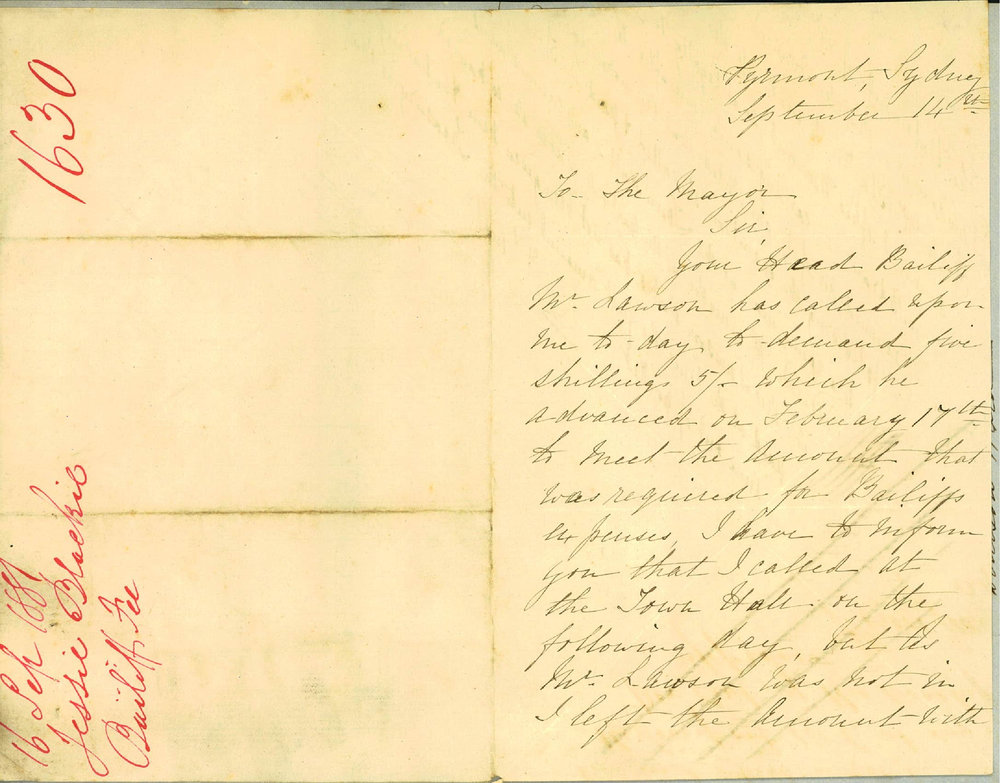 1630
16 Sep 1887
Jessie Blackie
Bailiff Fee
Pyrmont, Sydney
September 14th
To - The Mayor
Sir,
Your Head Bailiff
Mr. Lawson has called upon
me to-day to demand five
shillings 5/- which he
advanced on February 17th
to meet the amount that
was required for Bailiffs
expenses, I have to inform
you that I called at
the Town Hall on the
following day, but as
Mr. Lawson was not in
I left the amount with